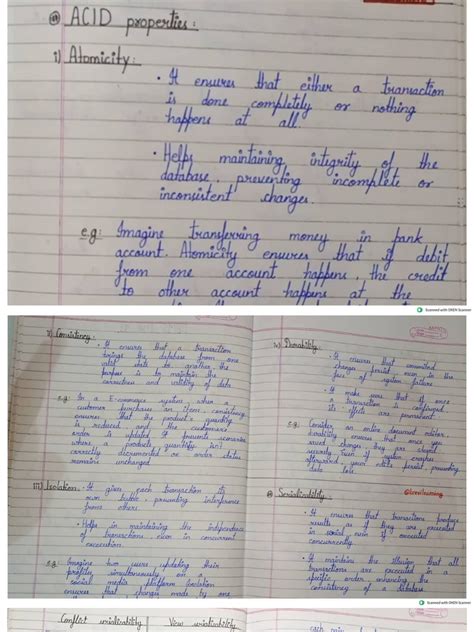 ACID properties:
1) Atomicity:
• It ensures that either a transaction
is done completely or nothing
happens at all.
• Helps maintaining integrity of the
database, preventing incomplete or
inconsistent changes.
e.g: Imagine transferring money in bank
account. Atomicity ensures that if debit
from one account happens, the credit
to other account happens at the
Scanned with OKEN Scanner
Consistency:
• It ensures that a transaction
brings the database from one
valid state to another, the
purpose is to maintain the
correctness and validity of data.
e.g: In a E-commerce system, when a
customer purchases an item, consistency
ensures that the product quantity
is reduced and the customers
order is updated. It prevents scenarios
where a product's quantity isn't
correctly decremented or order status
remains unchanged.
III) Isolation: • It gives each transaction its
own, preventing interference
from others.
• Helps in maintaining the independence
of transactions even in concurrent
execution.
e.g: Imagine two users updating their
profiles simultaneously on a
social media platform isolation
ensures that changes made by one
iv) Durability:
• It ensures that committed
changes persist even in the
face of system failure.
• It makes sure that if once
a transaction is confirmed,
its effects are permanent.
e.g: Consider an online document editor,
durability ensures that once you
saved changes, they are stored
securely. Even if system crashes
afterward, your edits persist, preventing
data loss
Serializability:
• It ensures that transactions produce
results as if they are executed
in serial even if executed
concurrently.
• It maintains the that all
transactions are executed in a
specific order, enhancing the
consistency of a database
Scanned with OKEN Scanner
Conflict serializability View serializability